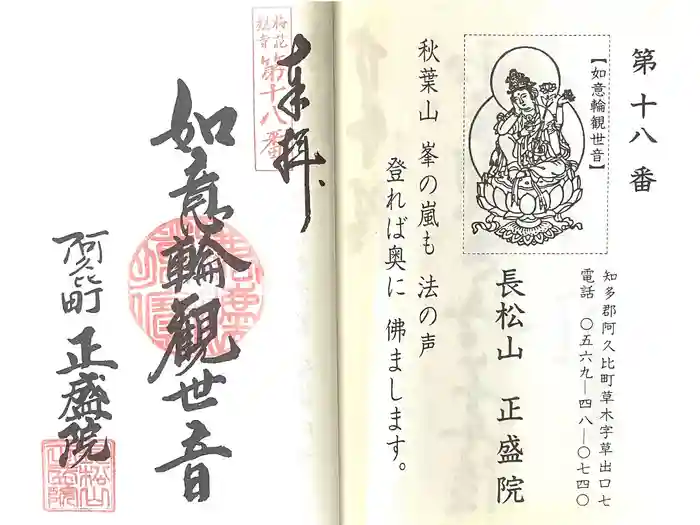 第十八番
【如意輪観世音】
知多郡阿久比町草木字草出口七
電話 〇五六九―四八―〇七四〇
長松山 正盛院
秋葉山 峯の嵐も 法の声
登れば奥に 佛まします。
奉拝、
第十八番
如意輪観世音
阿久比町 正盛院